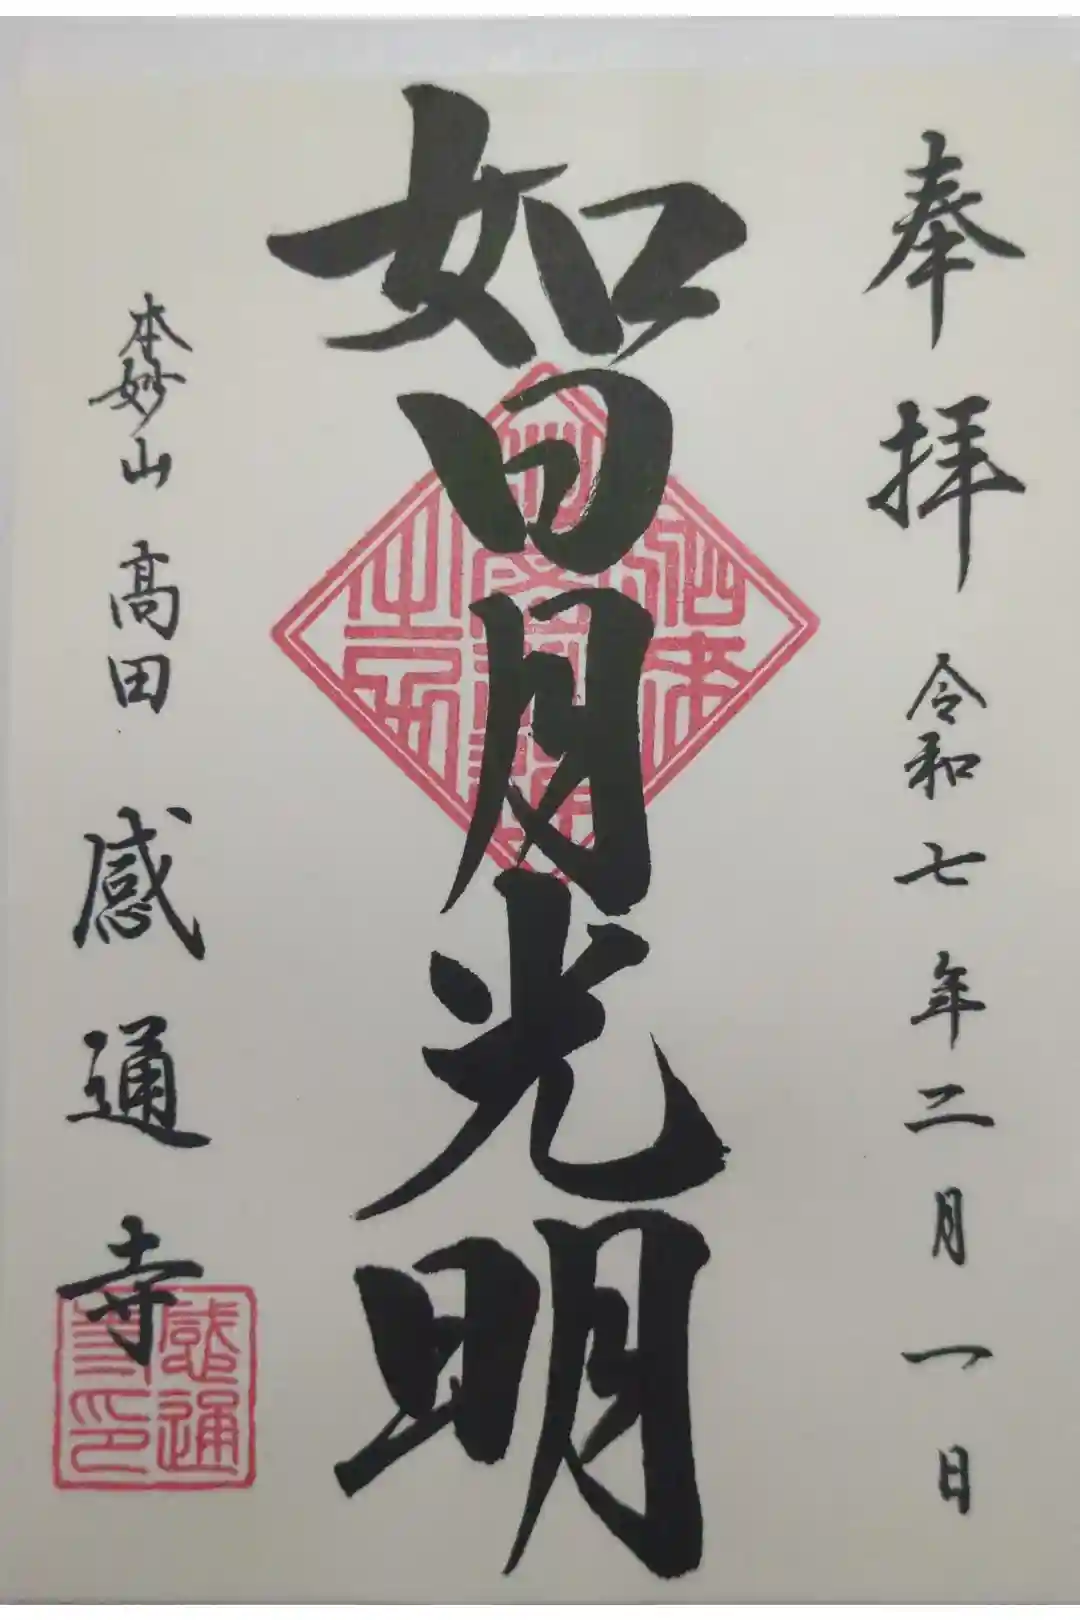 奉拝 令和七年二月一日
如日月光明
本妙山 高田 感通寺
感通
寺印